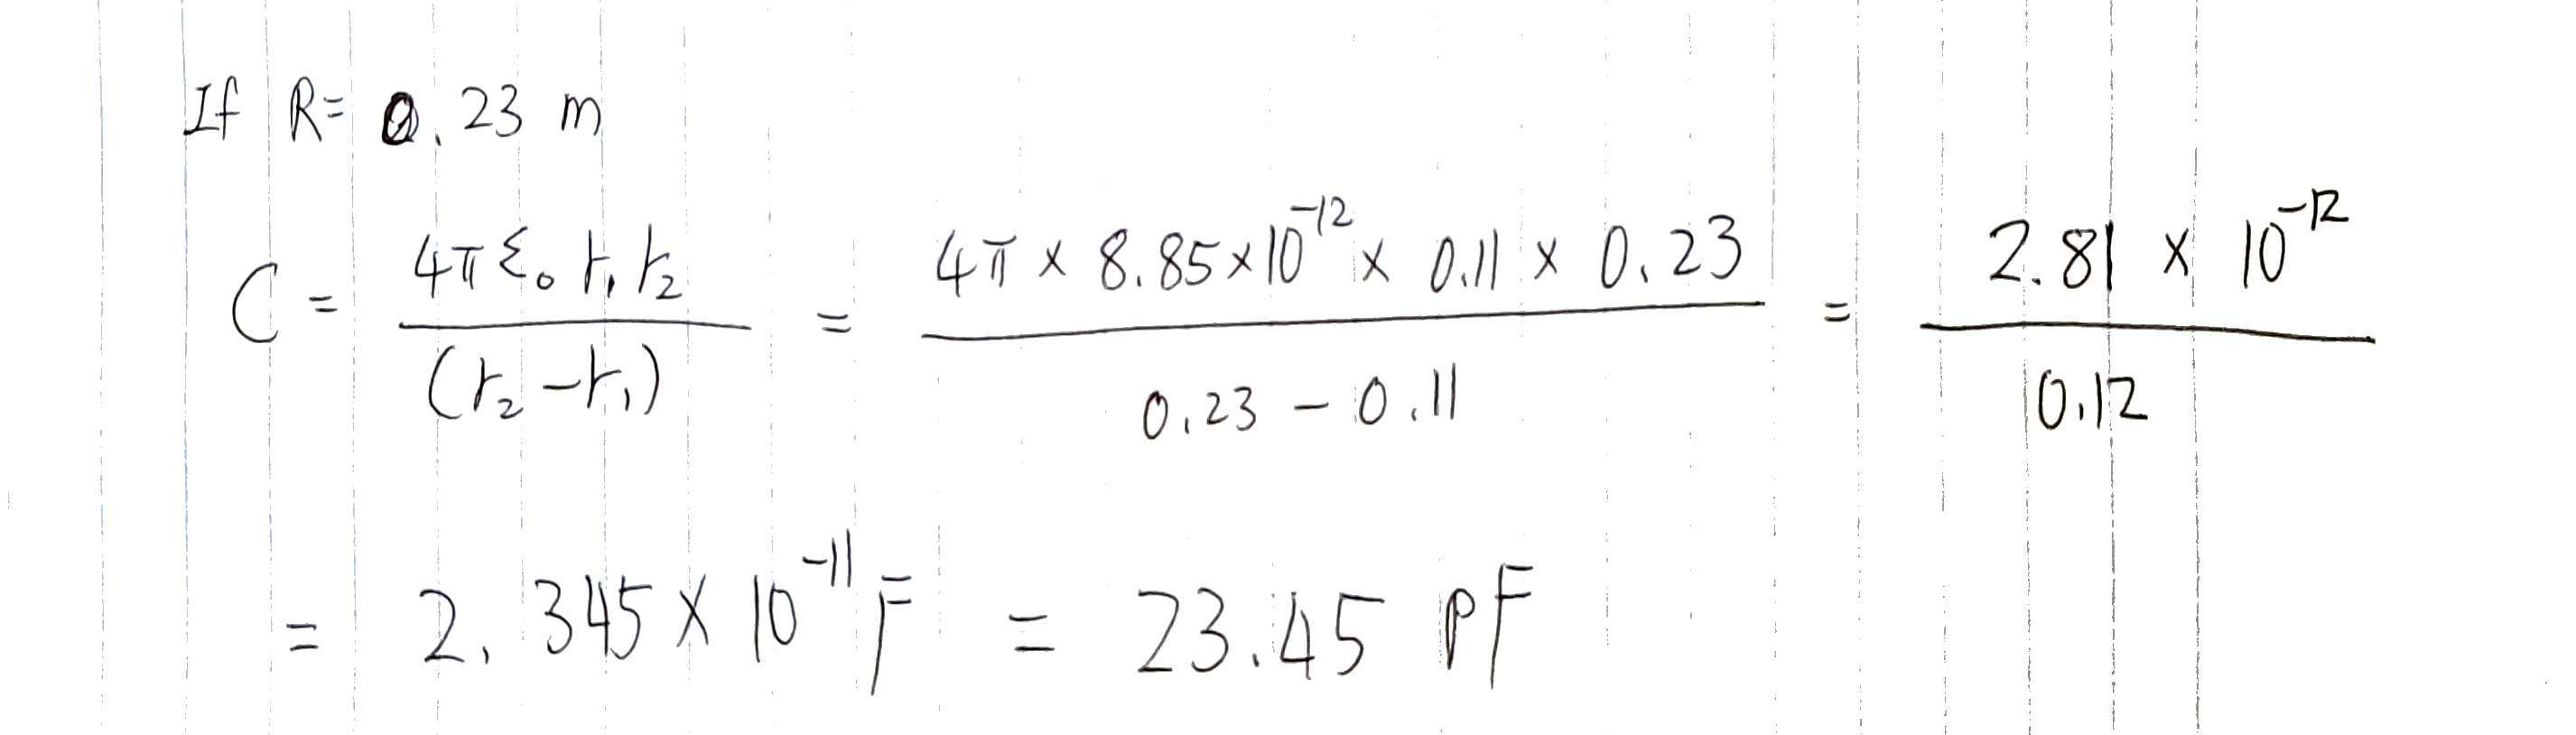 If R= 0.23 m
C = 4πε₀ r₁ r₂ / (r₂ - r₁) = 4π × 8.85×10⁻¹² × 0.11 × 0.23 / 0.23 - 0.11 = 2.81 × 10⁻¹² / 0.12
= 2.345 × 10⁻¹¹ F = 23.45 pF